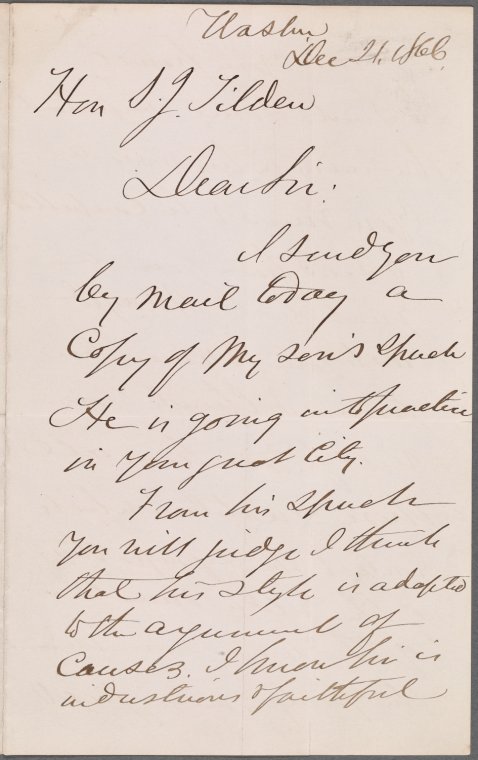 Washn
Dec 21, 1866
Hon S. J. Tilden
Dear Sir:
I send you
by mail today a
Copy of My son's speech
He is going into practice
in your great City.
From his speech
You will judge I think
that his style is adapted
to the argument of
Causes. I know he is
industrious & faithful